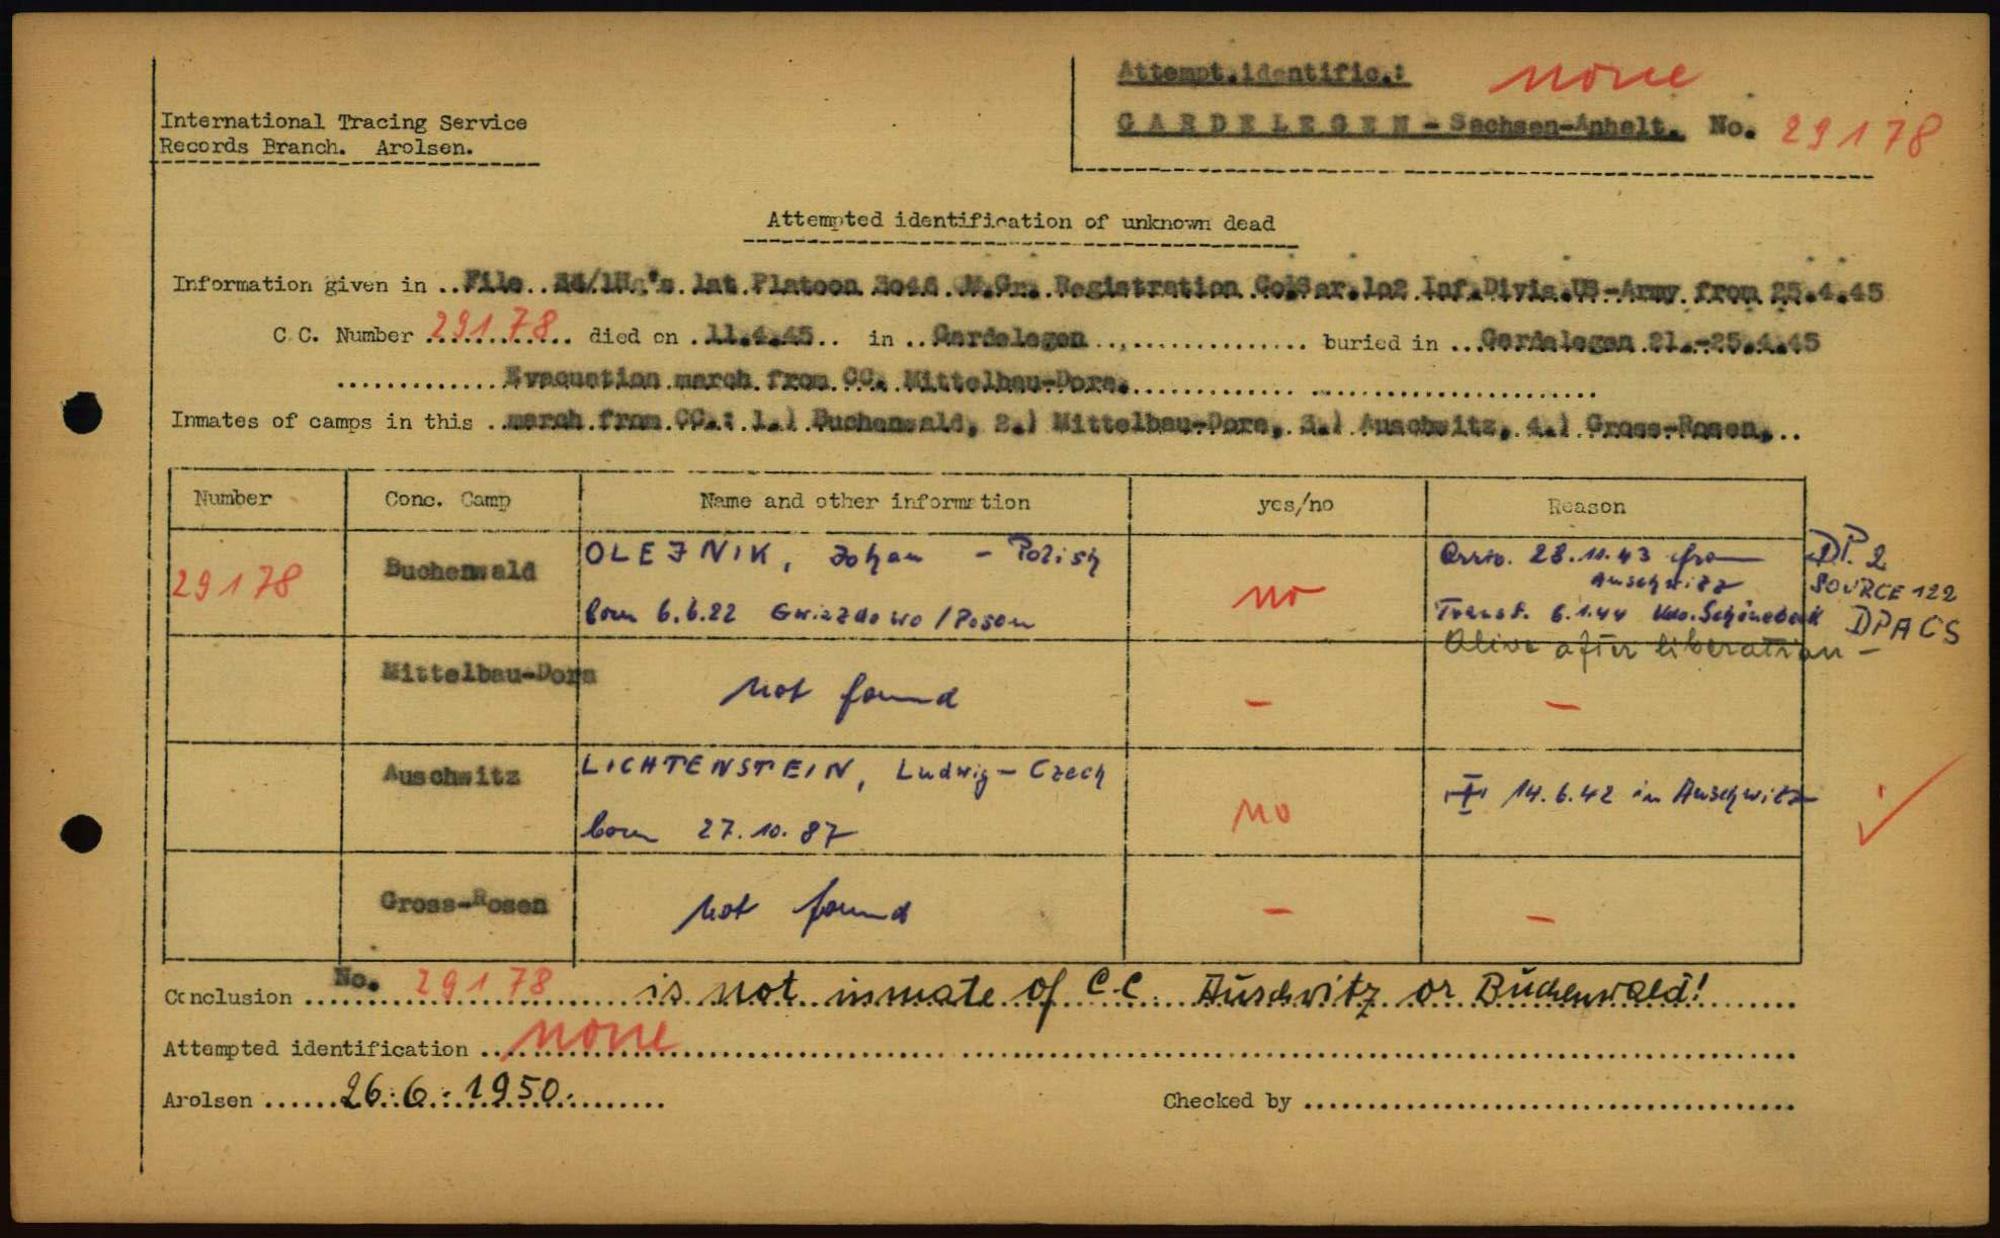 Attempt.identific.: none
GARDELEGEN - Sachsen-Anhalt. No. 29178
International Tracing Service
Records Branch. Arolsen.
Attempted identification of unknown dead
Information given in ..File.. /1Hq's 1st Platoon M.Gr. Registration Co. Inf.Divis.US-Army from 25.4.45
C.C. Number 29178 died on 11.4.45 in Gardelegen buried in Gardelegen 21.-25.4.45
Evacuation march from CC. Mittelbau-Dora.
Inmates of camps in this march from CC.: 1.) Buchenwald, 2.) Mittelbau-Dora, 3.) Auschwitz, 4.) Gross-Rosen,
Number Conc. Camp Name and other information yes/no Reason
29178 Buchenwald OLEJNIK, Johan - Polish no Arriv. 28.11.43 from Auschwitz DP. 2
born 6.6.22 Gwiazdowo/Posen Transf. 6.1.44 Kdo. Schönebeck SOURCE 122
Alive after liberation - DPACS
Mittelbau-Dora not found - -
Auschwitz LICHTENSTEIN, Ludwig - Czech no 14.6.42 in Auschwitz
born 27.10.87
Gross-Rosen not found - -
Conclusion No. 29178 is not inmate of C.C. Auschwitz or Buchenwald!
Attempted identification none
Arolsen 26.6.1950. Checked by